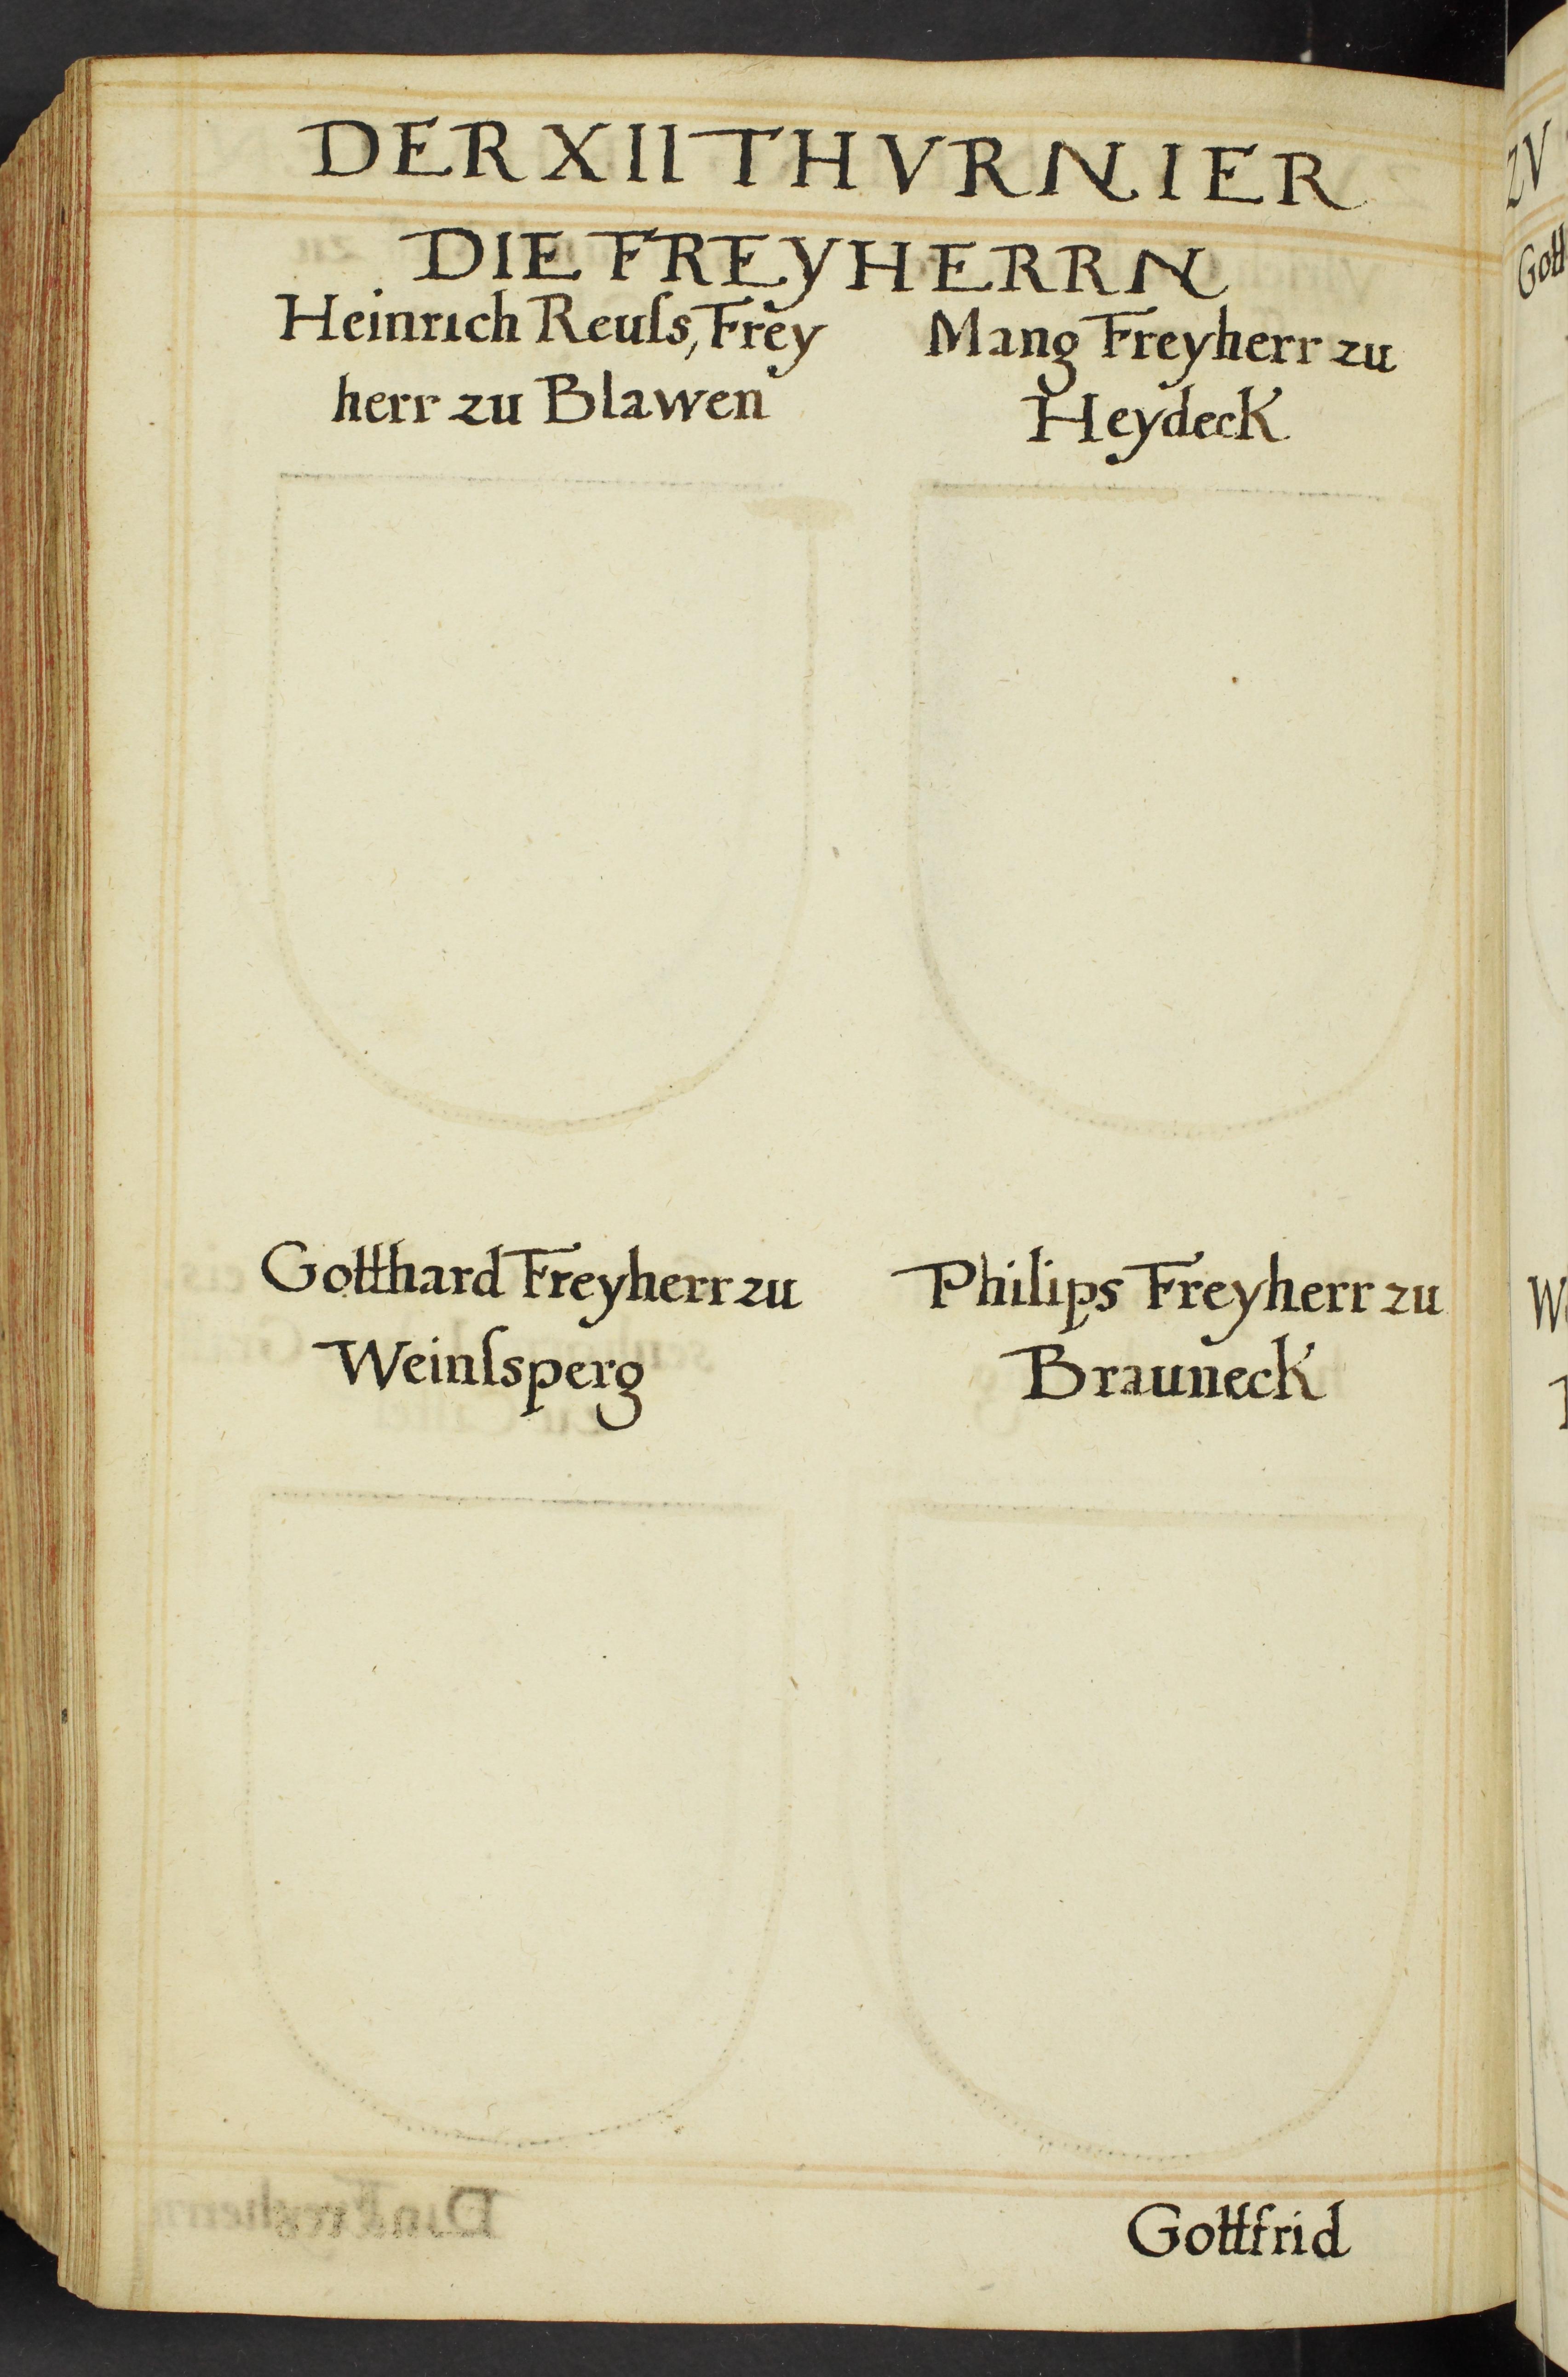 DER XII THVRNIER
DIE FREYHERRN
Heinrich Reuſs, Frey
herr zu Blawen
Mang Freyherr zu
Heydeck
Gotthard Freyherr zu
Weinſsperg
Philips Freyherr zu
Brauneck
Gottfrid
ZV
Gott